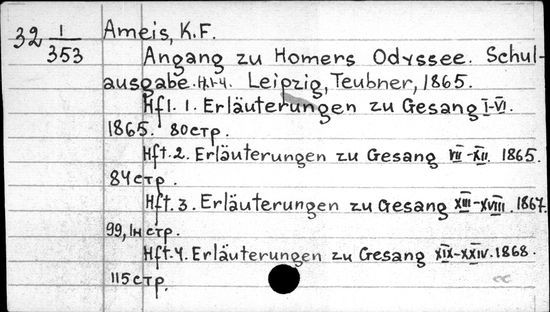 32 1/353 Ameis, K.F.
Angang zu Homers Odyssee. Schul-
ausgabe. H.1-4. Leipzig, Teubner, 1865.
Hft. 1. Erläuterungen zu Gesang I-VI.
1865. 80стр.
Hft. 2. Erläuterungen zu Gesang VII-XII. 1865.
84стр.
Hft. 3. Erläuterungen zu Gesang XIII-XVIII. 1867.
99, 1н стр.
Hft. 4. Erläuterungen zu Gesang XIX-XXIV. 1868.
115стр.